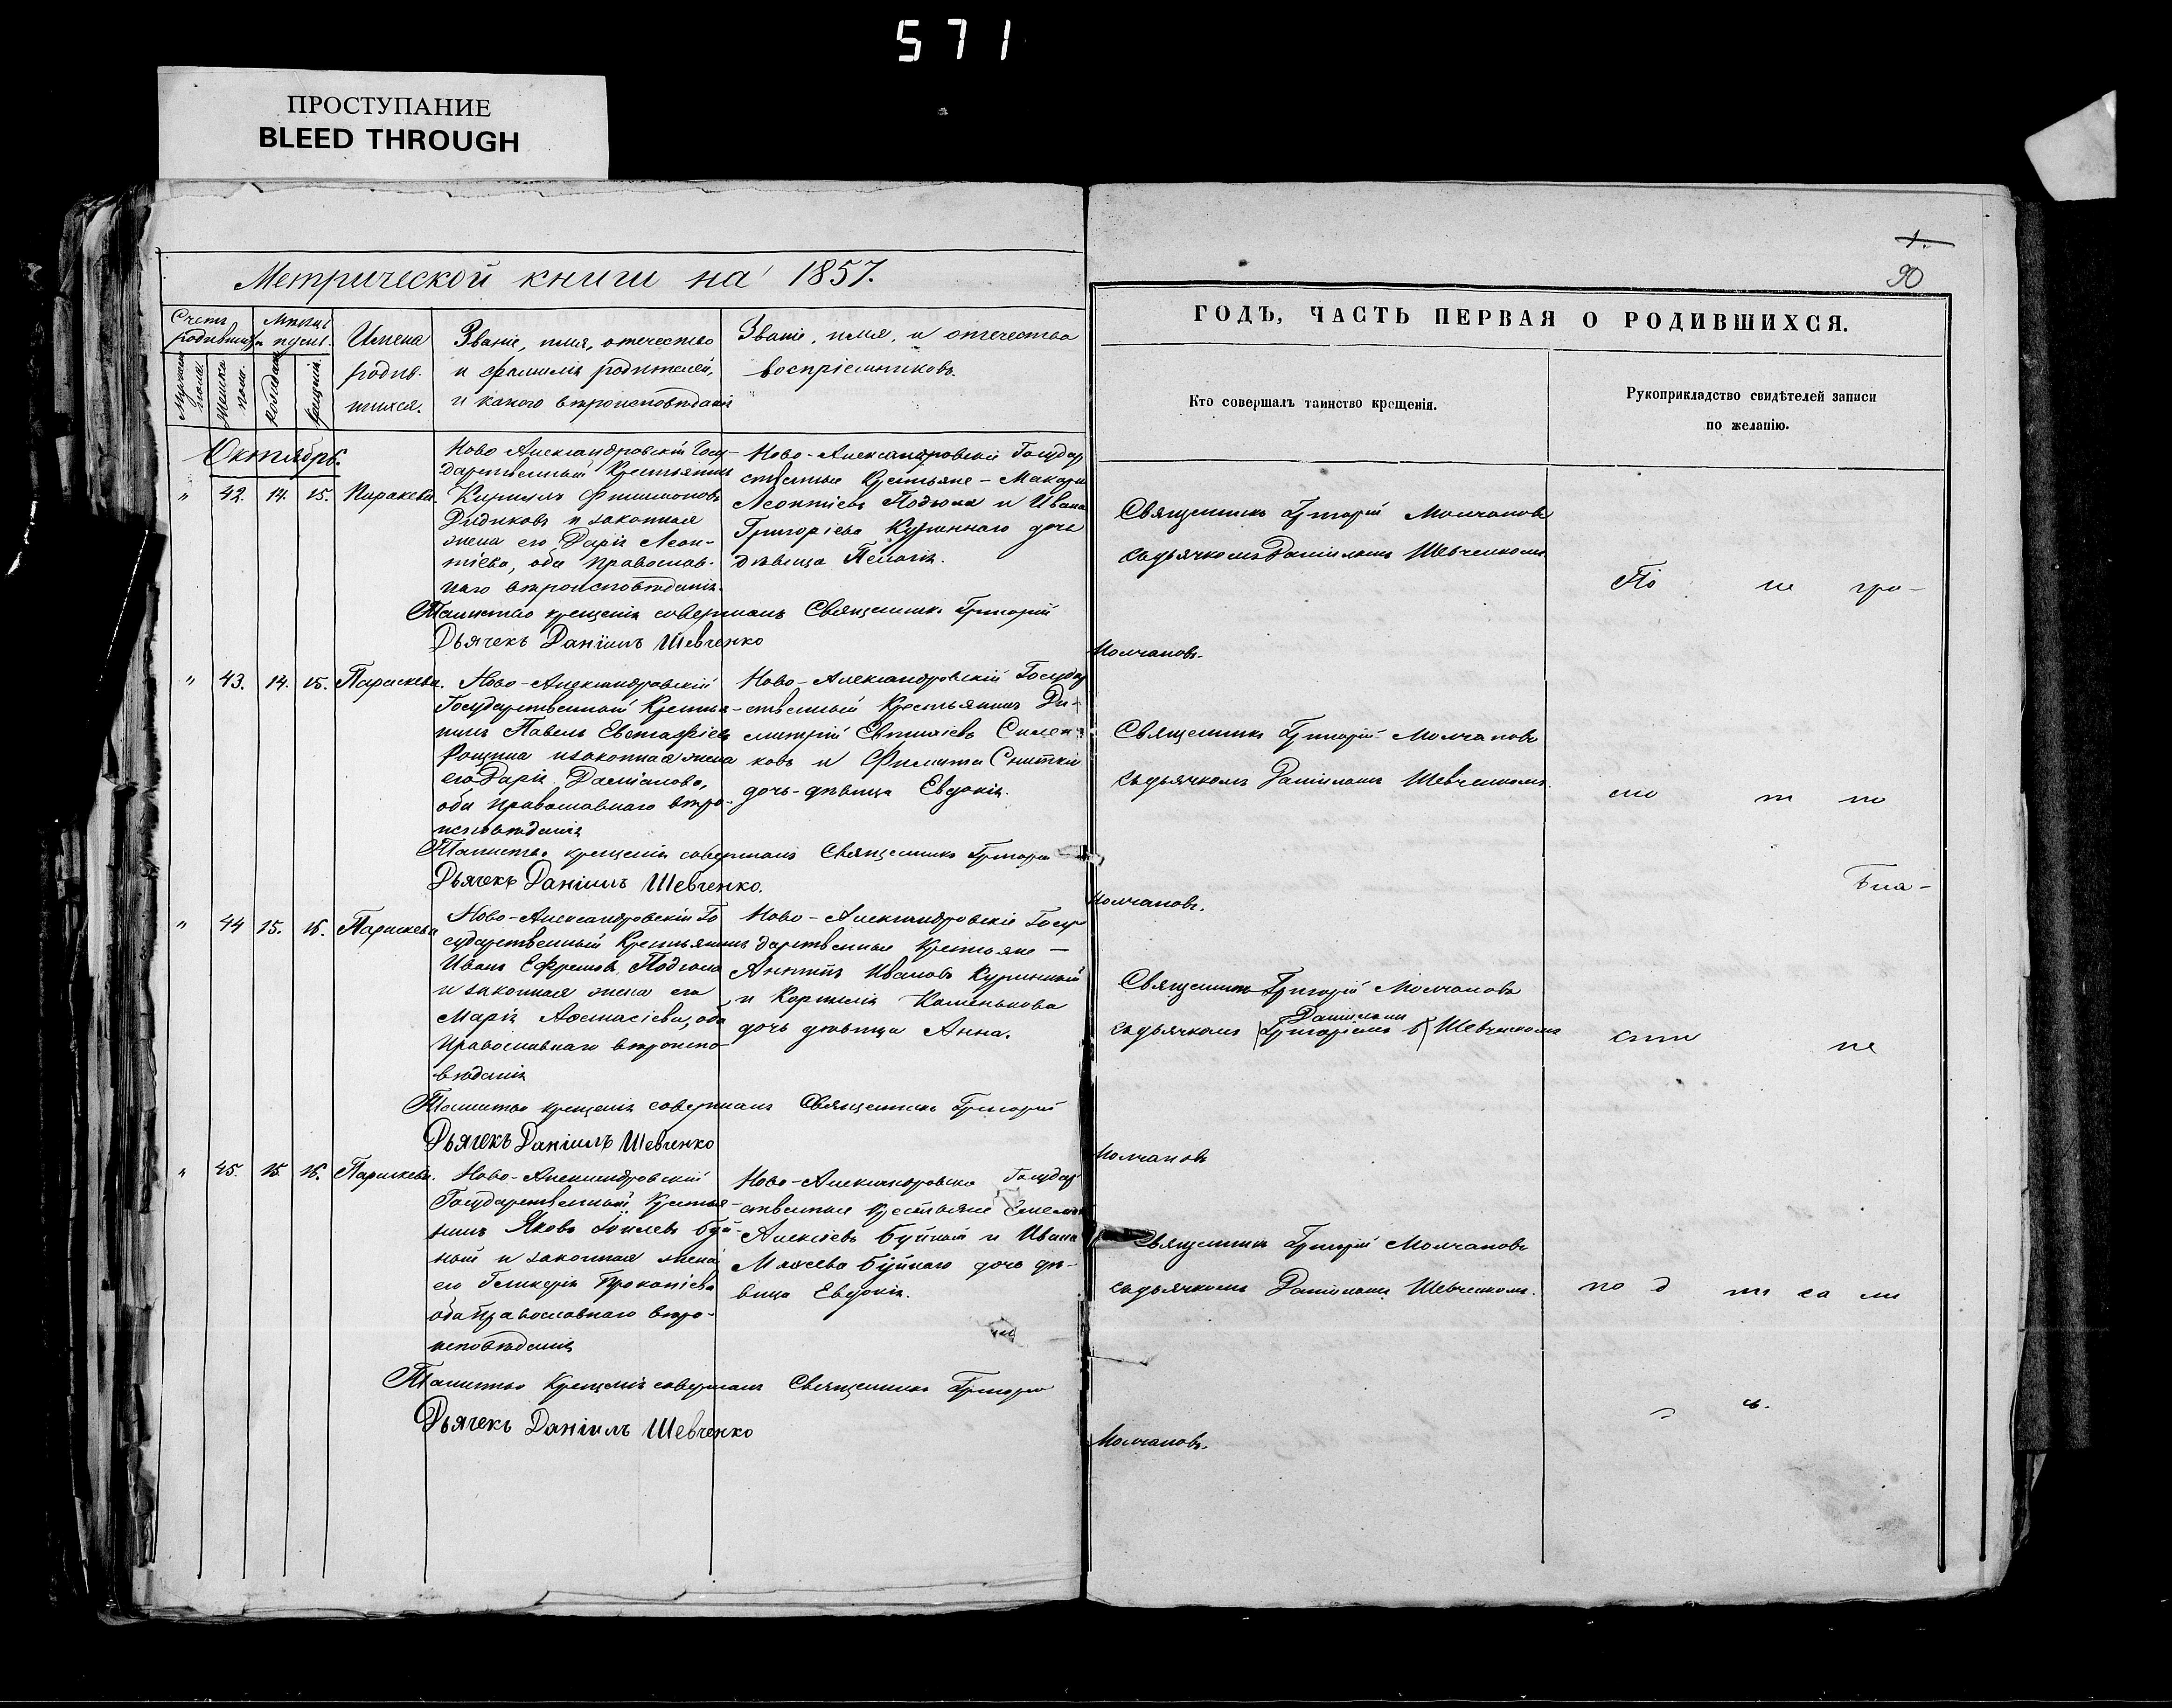 571
ПРОСТУПАНИЕ
BLEED THROUGH
Метрической книги на 1857.
Счетъ родившихся
Мужеска пола.
Женска пола.
рожденія
крещенія
Имена
родив-
шихся.
Званіе, имя, отечество
и фамилія родителей,
и какого вѣроисповѣданія
Званіе, имя, и отечество
воспріемниковъ.
1.
90
ГОДЪ, ЧАСТЬ ПЕРВАЯ О РОДИВШИХСЯ.
Кто совершалъ таинство крещенія.
Рукоприкладство свидѣтелей записи
по желанію.
Октябрь.
" 42. 14. 15. Параскева.
Ново Александровскій Госу-
дарственный Крестьянинъ
Кириллъ Филимоновъ
Дидиковъ и законная
жена его Дарія Леон-
тіева, оба православ-
наго вѣроисповѣданія.
Ново-Александровскіе Государ
ственные Крестьяне - Макарій
Леонтіевъ Подгола и Ивана
Григоріева Куриннаго дочь
дѣвица Пелагія.
Священникъ Григорій Молчановъ
съ дьячкомъ Даніиломъ Шевченкомъ
По не гра-
Таинство крещенія совершалъ Священникъ Григорій
Молчановъ.
Дьячекъ Даніилъ Шевченко
" 43. 14. 15. Параскева.
Ново-Александровскій
Государственный Крестья-
нинъ Павелъ Евстафіевъ
Рощина и законная жена
его Дарія Даміанова,
оба православнаго вѣро-
исповѣданія
Ново-Александровскій Государ
ственный Крестьянинъ Ди-
митрій Евтихіевъ Симен
ковъ и Филиппа Снитки
дочь-дѣвица Евдокія.
Священникъ Григорій Молчановъ
съ дьячкомъ Даніиломъ Шевченкомъ.
мо т но
Таинство крещенія совершалъ Священникъ Григорій
Молчановъ.
Дьячекъ Даніилъ Шевченко.
" 44 15. 16. Параскева
Ново-Александровскій Го
сударственный Крестьянинъ
Иванъ Ефремовъ Подгола
и законная жена его
Марія Аѳанасіева, оба
Православнаго вѣроиспо-
вѣданія
Ново-Александровскіе Госу
дарственные Крестьяне -
Антипъ Ивановъ Куринный
и Корнилія Каменькова
дочь дѣвица Анна.
Священникъ Григорій Молчановъ
Даніиломъ
съ дьячкомъ Григоріемъ Шевченкомъ
сти не
Таинство крещенія совершалъ Священникъ Григорій
Молчановъ
Дьячекъ Даніилъ Шевченко
" 45. 15. 16. Параскева.
Ново-Александровскій
Государственный Крестья-
нинъ Яковъ Іоилевъ Буй-
ный и законная жена
его Гликерія Прокопіева
оба православнаго вѣро-
исповѣданія
Ново-Александровскіе Государ
ственные Крестьяне Емельянъ
Алексіевъ Буйный и Ивана
Моисеева Буйнаго дочь дѣ-
вица Евдокія.
Священникъ Григорій Молчановъ
съ дьячкомъ Даніиломъ Шевченкомъ.
по д пи са ли
сь.
Таинство Крещенія совершалъ Священникъ Григорій
Молчановъ.
Дьячекъ Даніилъ Шевченко